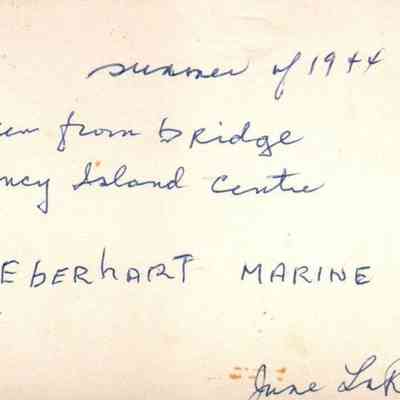 summer of 1944
from bridge
Island Centre
EBERHART MARINE
June